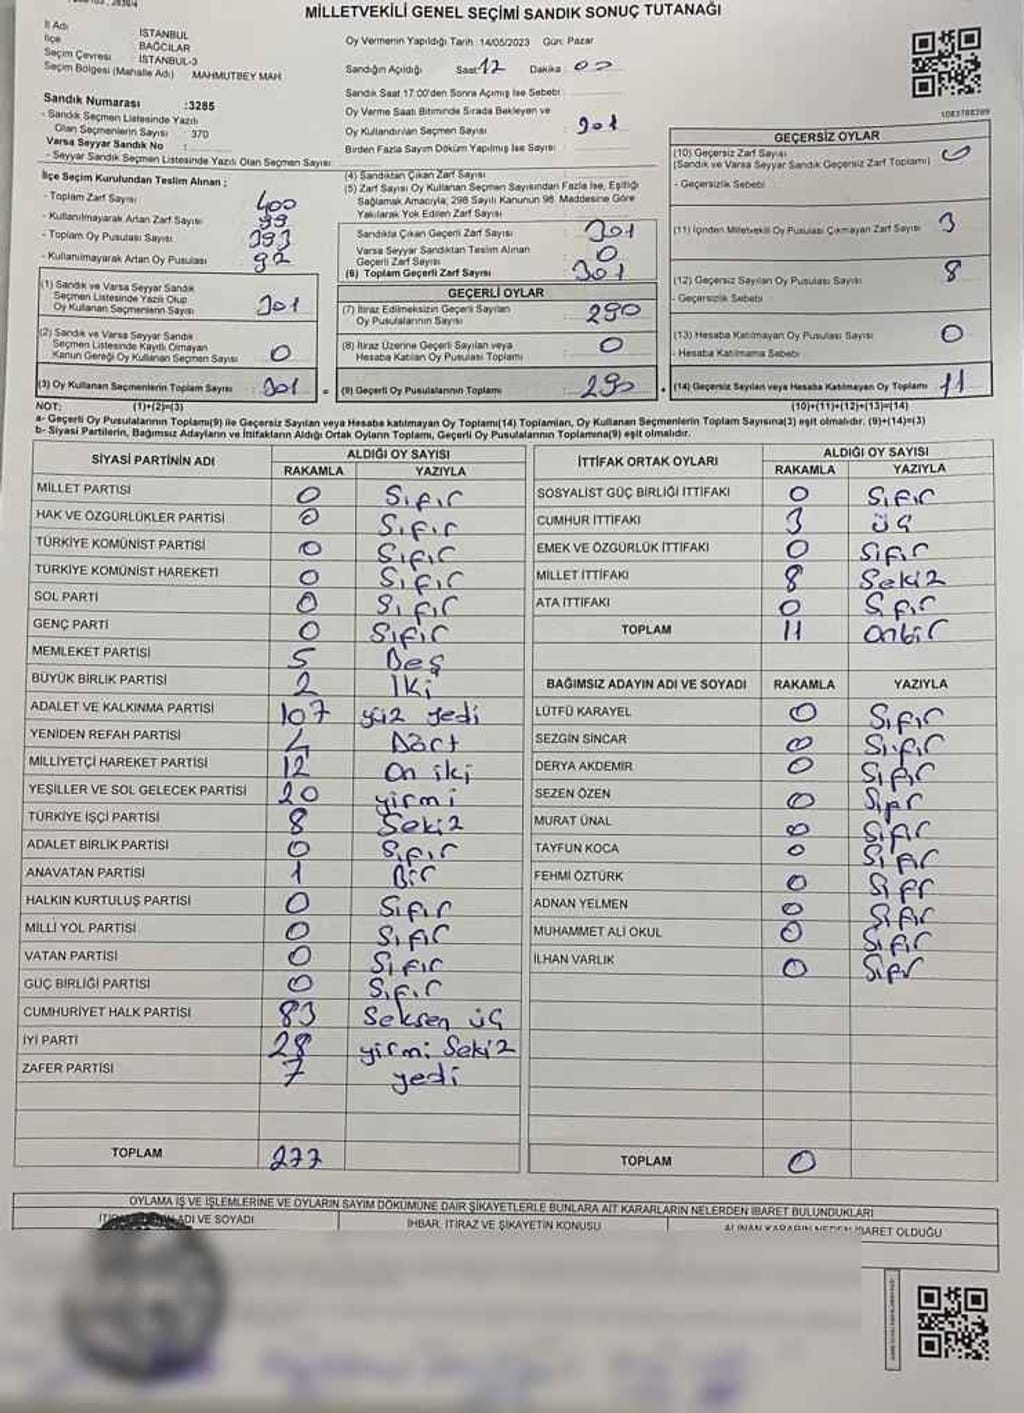 MİLLETVEKİLİ GENEL SEÇİMİ SANDIK SONUÇ TUTANAĞI
İl Adı İSTANBUL
İlçe BAĞCILAR
Seçim Çevresi İSTANBUL-3
Seçim Bölgesi (Mahalle Adı) MAHMUTBEY MAH
Sandık Numarası :3285
- Sandık Seçmen Listesinde Yazılı
Olan Seçmenlerin Sayısı : 370
Varsa Seyyar Sandık No :
- Seyyar Sandık Seçmen Listesinde Yazılı Olan Seçmen Sayısı :
Oy Vermenin Yapıldığı Tarih :14/05/2023 Gün: Pazar
Sandığın Açıldığı Saat 17 Dakika : 00
Sandık Saat 17:00'den Sonra Açılmış İse Sebebi :
Oy Verme Saati Bitiminde Sırada Bekleyen ve
Oy Kullandırılan Seçmen Sayısı : 301
Birden Fazla Sayım Döküm Yapılmış İse Sayısı :
1083788399
İlçe Seçim Kurulundan Teslim Alınan :
- Toplam Zarf Sayısı : 400
- Kullanılmayarak Artan Zarf Sayısı : 99
- Toplam Oy Pusulası Sayısı : 393
- Kullanılmayarak Artan Oy Pusulası : 92
(1) Sandık ve Varsa Seyyar Sandık
Seçmen Listesinde Yazılı Olup
Oy Kullanan Seçmenlerin Sayısı : 301
(2) Sandık ve Varsa Seyyar Sandık
Seçmen Listesinde Kayıtlı Olmayan
Kanun Gereği Oy Kullanan Seçmen Sayısı : 0
(3) Oy Kullanan Seçmenlerin Toplam Sayısı : 301
(1)+(2)=(3)
(4) Sandıktan Çıkan Zarf Sayısı :
(5) Zarf Sayısı Oy Kullanan Seçmen Sayısından Fazla İse, Eşitliği
Sağlamak Amacıyla; 298 Sayılı Kanunun 98. Maddesine Göre
Yakılarak Yok Edilen Zarf Sayısı :
Sandıkta Çıkan Geçerli Zarf Sayısı : 301
Varsa Seyyar Sandıktan Teslim Alınan
Geçerli Zarf Sayısı : 0
(6) Toplam Geçerli Zarf Sayısı : 301
GEÇERLİ OYLAR
(7) İtiraz Edilmeksizin Geçerli Sayılan
Oy Pusulalarının Sayısı : 290
(8) İtiraz Üzerine Geçerli Sayılan veya
Hesaba Katılan Oy Pusulası Toplamı : 0
= (9) Geçerli Oy Pusulalarının Toplamı : 290
GEÇERSİZ OYLAR
(10) Geçersiz Zarf Sayısı
(Sandık ve Varsa Seyyar Sandık Geçersiz Zarf Toplamı) : 0
- Geçersizlik Sebebi :
(11) İçinden Milletvekili Oy Pusulası Çıkmayan Zarf Sayısı : 3
(12) Geçersiz Sayılan Oy Pusulası Sayısı : 8
- Geçersizlik Sebebi :
(13) Hesaba Katılmayan Oy Pusulası Sayısı : 0
- Hesaba Katılmama Sebebi :
+ (14) Geçersiz Sayılan veya Hesaba Katılmayan Oy Toplamı : 11
(10)+(11)+(12)+(13)=(14)
NOT:
a- Geçerli Oy Pusulalarının Toplamı(9) ile Geçersiz Sayılan veya Hesaba katılmayan Oy Toplamı(14) Toplamları, Oy Kullanan Seçmenlerin Toplam Sayısına(3) eşit olmalıdır. (9)+(14)=(3)
b- Siyasi Partilerin, Bağımsız Adayların ve İttifakların Aldığı Ortak Oyların Toplamı, Geçerli Oy Pusulalarının Toplamına(9) eşit olmalıdır.
SİYASİ PARTİNİN ADI ALDIĞI OY SAYISI
RAKAMLA YAZIYLA
MİLLET PARTİSİ 0 Sıfır
HAK VE ÖZGÜRLÜKLER PARTİSİ 0 Sıfır
TÜRKİYE KOMÜNİST PARTİSİ 0 Sıfır
TÜRKİYE KOMÜNİST HAREKETİ 0 Sıfır
SOL PARTİ 0 Sıfır
GENÇ PARTİ 0 Sıfır
MEMLEKET PARTİSİ 5 Beş
BÜYÜK BİRLİK PARTİSİ 2 İki
ADALET VE KALKINMA PARTİSİ 107 yüz yedi
YENİDEN REFAH PARTİSİ 4 Dört
MİLLİYETÇİ HAREKET PARTİSİ 12 On iki
YEŞİLLER VE SOL GELECEK PARTİSİ 20 yirmi
TÜRKİYE İŞÇİ PARTİSİ 8 Sekiz
ADALET BİRLİK PARTİSİ 0 Sıfır
ANAVATAN PARTİSİ 1 Bir
HALKIN KURTULUŞ PARTİSİ 0 Sıfır
MİLLİ YOL PARTİSİ 0 Sıfır
VATAN PARTİSİ 0 Sıfır
GÜÇ BİRLİĞİ PARTİSİ 0 Sıfır
CUMHURİYET HALK PARTİSİ 83 Seksen üç
İYİ PARTİ 28 yirmi Sekiz
ZAFER PARTİSİ 7 yedi
TOPLAM 277
İTTİFAK ORTAK OYLARI ALDIĞI OY SAYISI
RAKAMLA YAZIYLA
SOSYALİST GÜÇ BİRLİĞİ İTTİFAKI 0 Sıfır
CUMHUR İTTİFAKI 3 üç
EMEK VE ÖZGÜRLÜK İTTİFAKI 0 Sıfır
MİLLET İTTİFAKI 8 Sekiz
ATA İTTİFAKI 0 Sıfır
TOPLAM 11 onbir
BAĞIMSIZ ADAYIN ADI VE SOYADI RAKAMLA YAZIYLA
LÜTFÜ KARAYEL 0 Sıfır
SEZGİN SİNCAR 0 Sıfır
DERYA AKDEMİR 0 Sıfır
SEZEN ÖZEN 0 Sıfır
MURAT ÜNAL 0 Sıfır
TAYFUN KOCA 0 Sıfır
FEHMİ ÖZTÜRK 0 Sıfır
ADNAN YELMEN 0 Sıfır
MUHAMMET ALİ OKUL 0 Sıfır
İLHAN VARLIK 0 Sıfır
TOPLAM 0
OYLAMA İŞ VE İŞLEMLERİNE VE OYLARIN SAYIM DÖKÜMÜNE DAİR ŞİKAYETLERLE BUNLARA AİT KARARLARIN NELERDEN İBARET BULUNDUKLARI
ADI VE SOYADI İHBAR, İTİRAZ VE ŞİKAYETİN KONUSU ALINAN KARARIN NEDEN İBARET OLDUĞU